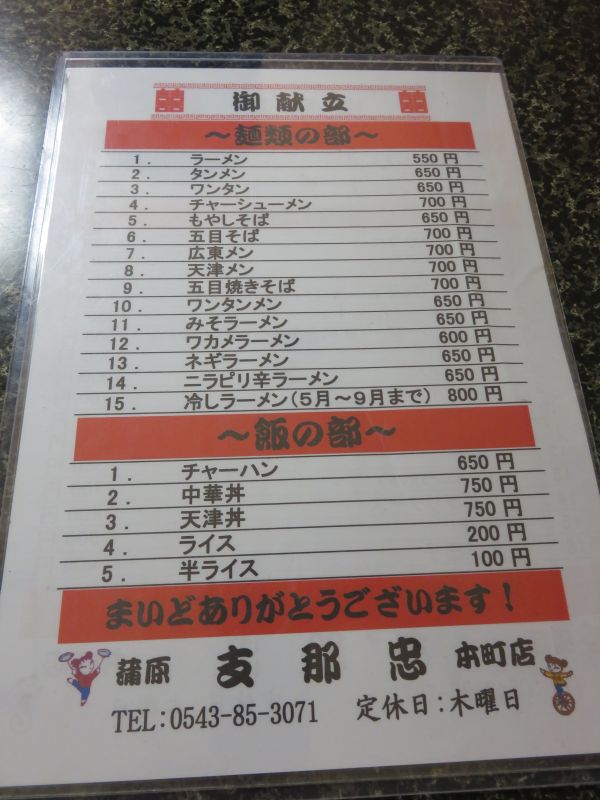 御献立
～麺類の部～
1. ラーメン 550円
2. タンメン 650円
3. ワンタン 650円
4. チャーシューメン 700円
5. もやしそば 650円
6. 五目そば 700円
7. 広東メン 700円
8. 天津メン 700円
9. 五目焼きそば 700円
10. ワンタンメン 650円
11. みそラーメン 650円
12. ワカメラーメン 600円
13. ネギラーメン 650円
14. ニラピリ辛ラーメン 650円
15. 冷しラーメン（5月～9月まで） 800円
～飯の部～
1. チャーハン 650円
2. 中華丼 750円
3. 天津丼 750円
4. ライス 200円
5. 半ライス 100円
まいどありがとうございます！
蒲原 支那忠 本町店
TEL:0543-85-3071 定休日:木曜日